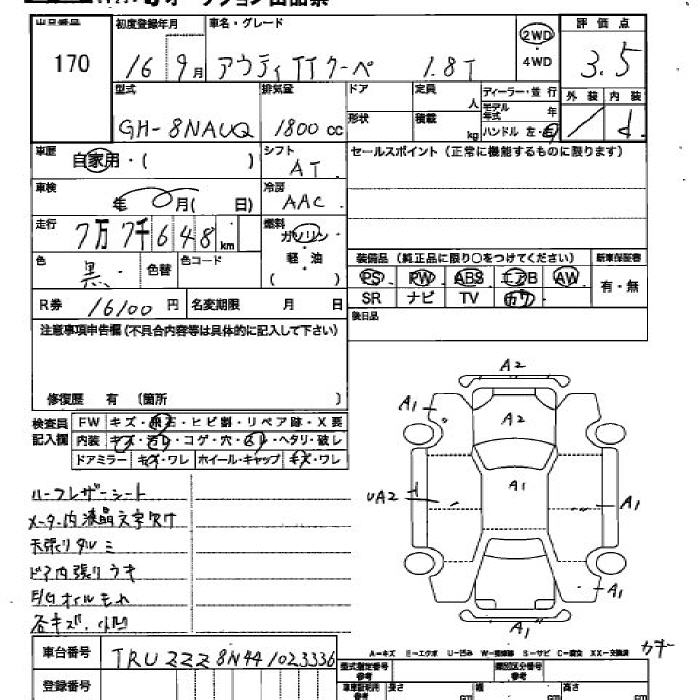 出品番号 初度登録年月 車名・グレード 2WD 評価点
170 16 9月 アウディTTクーペ 1.8T ・4WD 3.5
型式 排気量 ドア 定員 ディーラー・並行 外装 内装
GH-8NAUQ 1800cc 人 モデル年式 年 d
形状 積載 kg ハンドル 左・右
車歴 自家用・( ) シフト AT セールスポイント(正常に機能するものに限ります)
車検 年 月( 日) 冷房 AAC
走行 7万7千648km 燃料 ガソリン・軽・油 ( )
装備品(純正品に限り○をつけてください) 新車保証書
色 黒 色替 色コード PS PW ABS エアB AW 有・無
SR ナビ TV カワ
R券 16100円 名変期限 月 日 後日品
注意事項申告欄(不具合内容等は具体的に記入して下さい)
修復歴 有 (箇所 )
検査員記入欄 FW キズ・飛石・ヒビ割・リペア跡・X要
内装 キズ・汚レ・コゲ・穴・スレ・ヘタリ・破レ
ドアミラー キズ・ワレ ホイール・キャップ キズ・ワレ
ハーフレザーシート
メーター内液晶文字欠け
天張りタルミ
ドア内張りうき
E/Gオイルもれ
各キズ、小凹
A2
A1 A2
A1
UA2 A1
A1
A1
カギ
車台番号 TRUZZZ8N441023336
A-キズ E-エクボ U-凹み W-補修跡 S-サビ C-腐食 XX-交換済
登録番号 型式指定番号 参考 類別区分番号 参考
車庫証明用 参考 長さ cm 幅 cm 高さ cm